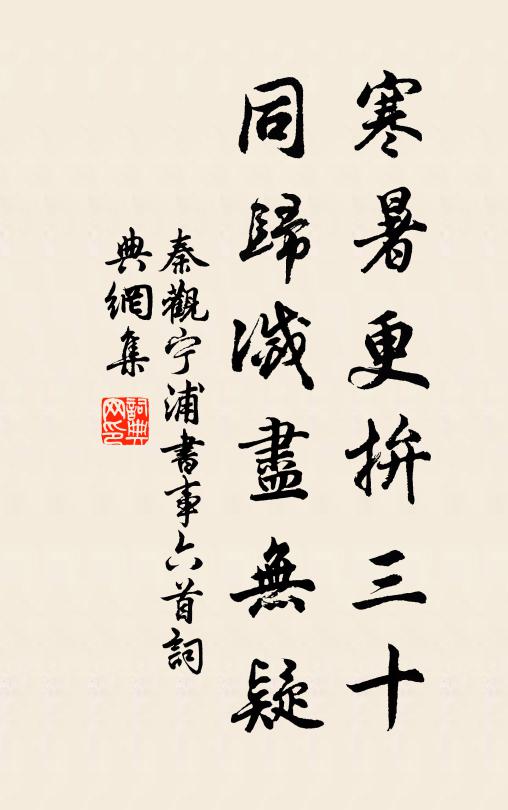 寒暑更拚三十
同歸滅盡無疑
秦觀宁浦書事六首詞
典網集
詞典網印